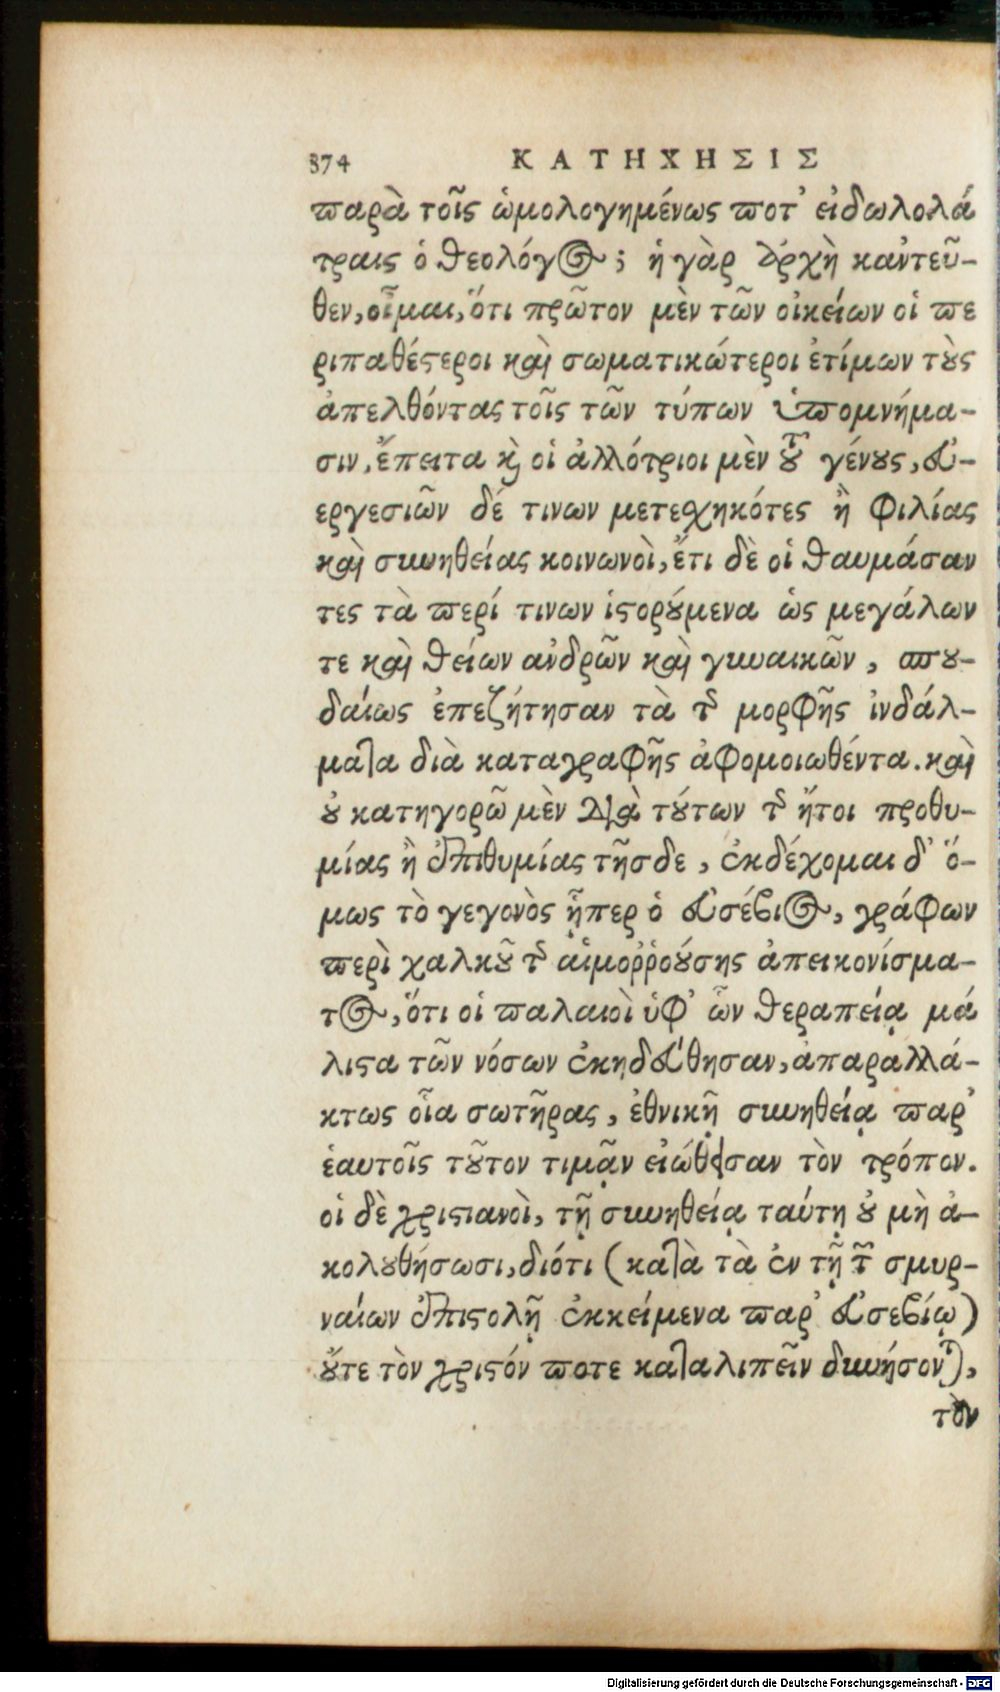 374 ΚΑΤΗΧΗΣΙΣ
παρὰ τοῖς ὡμολογημένως ποτ' εἰδωλολά
τραις ὁ θεολόγος; ἡ γὰρ ἀρχὴ κἀντεῦ-
θεν, οἶμαι, ὅτι πρῶτον μὲν τῶν οἰκείων οἱ πε
ριπαθέστεροι καὶ σωματικώτεροι ἐτίμων τοὺς
ἀπελθόντας τοῖς τῶν τύπων ὑπομνήμα-
σιν, ἔπειτα καὶ οἱ ἀλλότριοι μὲν τοῦ γένους, εὐ-
εργεσιῶν δέ τινων μετεσχηκότες ἢ φιλίας
καὶ συνηθείας κοινωνοὶ, ἔτι δὲ οἱ θαυμάσαν
τες τὰ περί τινων ἱστορούμενα ὡς μεγάλων
τε καὶ θείων ἀνδρῶν καὶ γυναικῶν, σπου-
δαίως ἐπεζήτησαν τὰ τῆς μορφῆς ἰνδάλ-
ματα διὰ καταγραφῆς ἀφομοιωθέντα. καὶ
οὐ κατηγορῶ μὲν διὰ τούτων τῆς ἤτοι προθυ-
μίας ἢ ἐπιθυμίας τῆσδε, ἐκδέχομαι δ' ὅ-
μως τὸ γεγονὸς ᾗπερ ὁ εὐσέβιος, γράφων
περὶ χαλκοῦ τῆς αἱμοῤῥούσης ἀπεικονίσμα-
τος, ὅτι οἱ παλαιοὶ ὑφ' ὧν θεραπείᾳ μά
λιστα τῶν νόσων ἐκηδεύθησαν, ἀπαραλλά-
κτως οἷα σωτῆρας, ἐθνικῇ συνηθείᾳ παρ'
ἑαυτοῖς τοῦτον τιμᾷν εἰώθεσαν τὸν τρόπον.
οἱ δὲ χριστιανοὶ, τῇ συνηθείᾳ ταύτῃ οὐ μὴ ἀ-
κολουθήσωσι, διότι (κατὰ τὰ ἐν τῇ τῶν σμυρ-
ναίων ἐπιστολῇ ἐκκείμενα παρ' εὐσεβίῳ)
οὔτε τὸν χριστόν ποτε καταλιπεῖν δυνήσονται,
τὸν
Digitalisierung gefördert durch die Deutsche Forschungsgemeinschaft - DFG